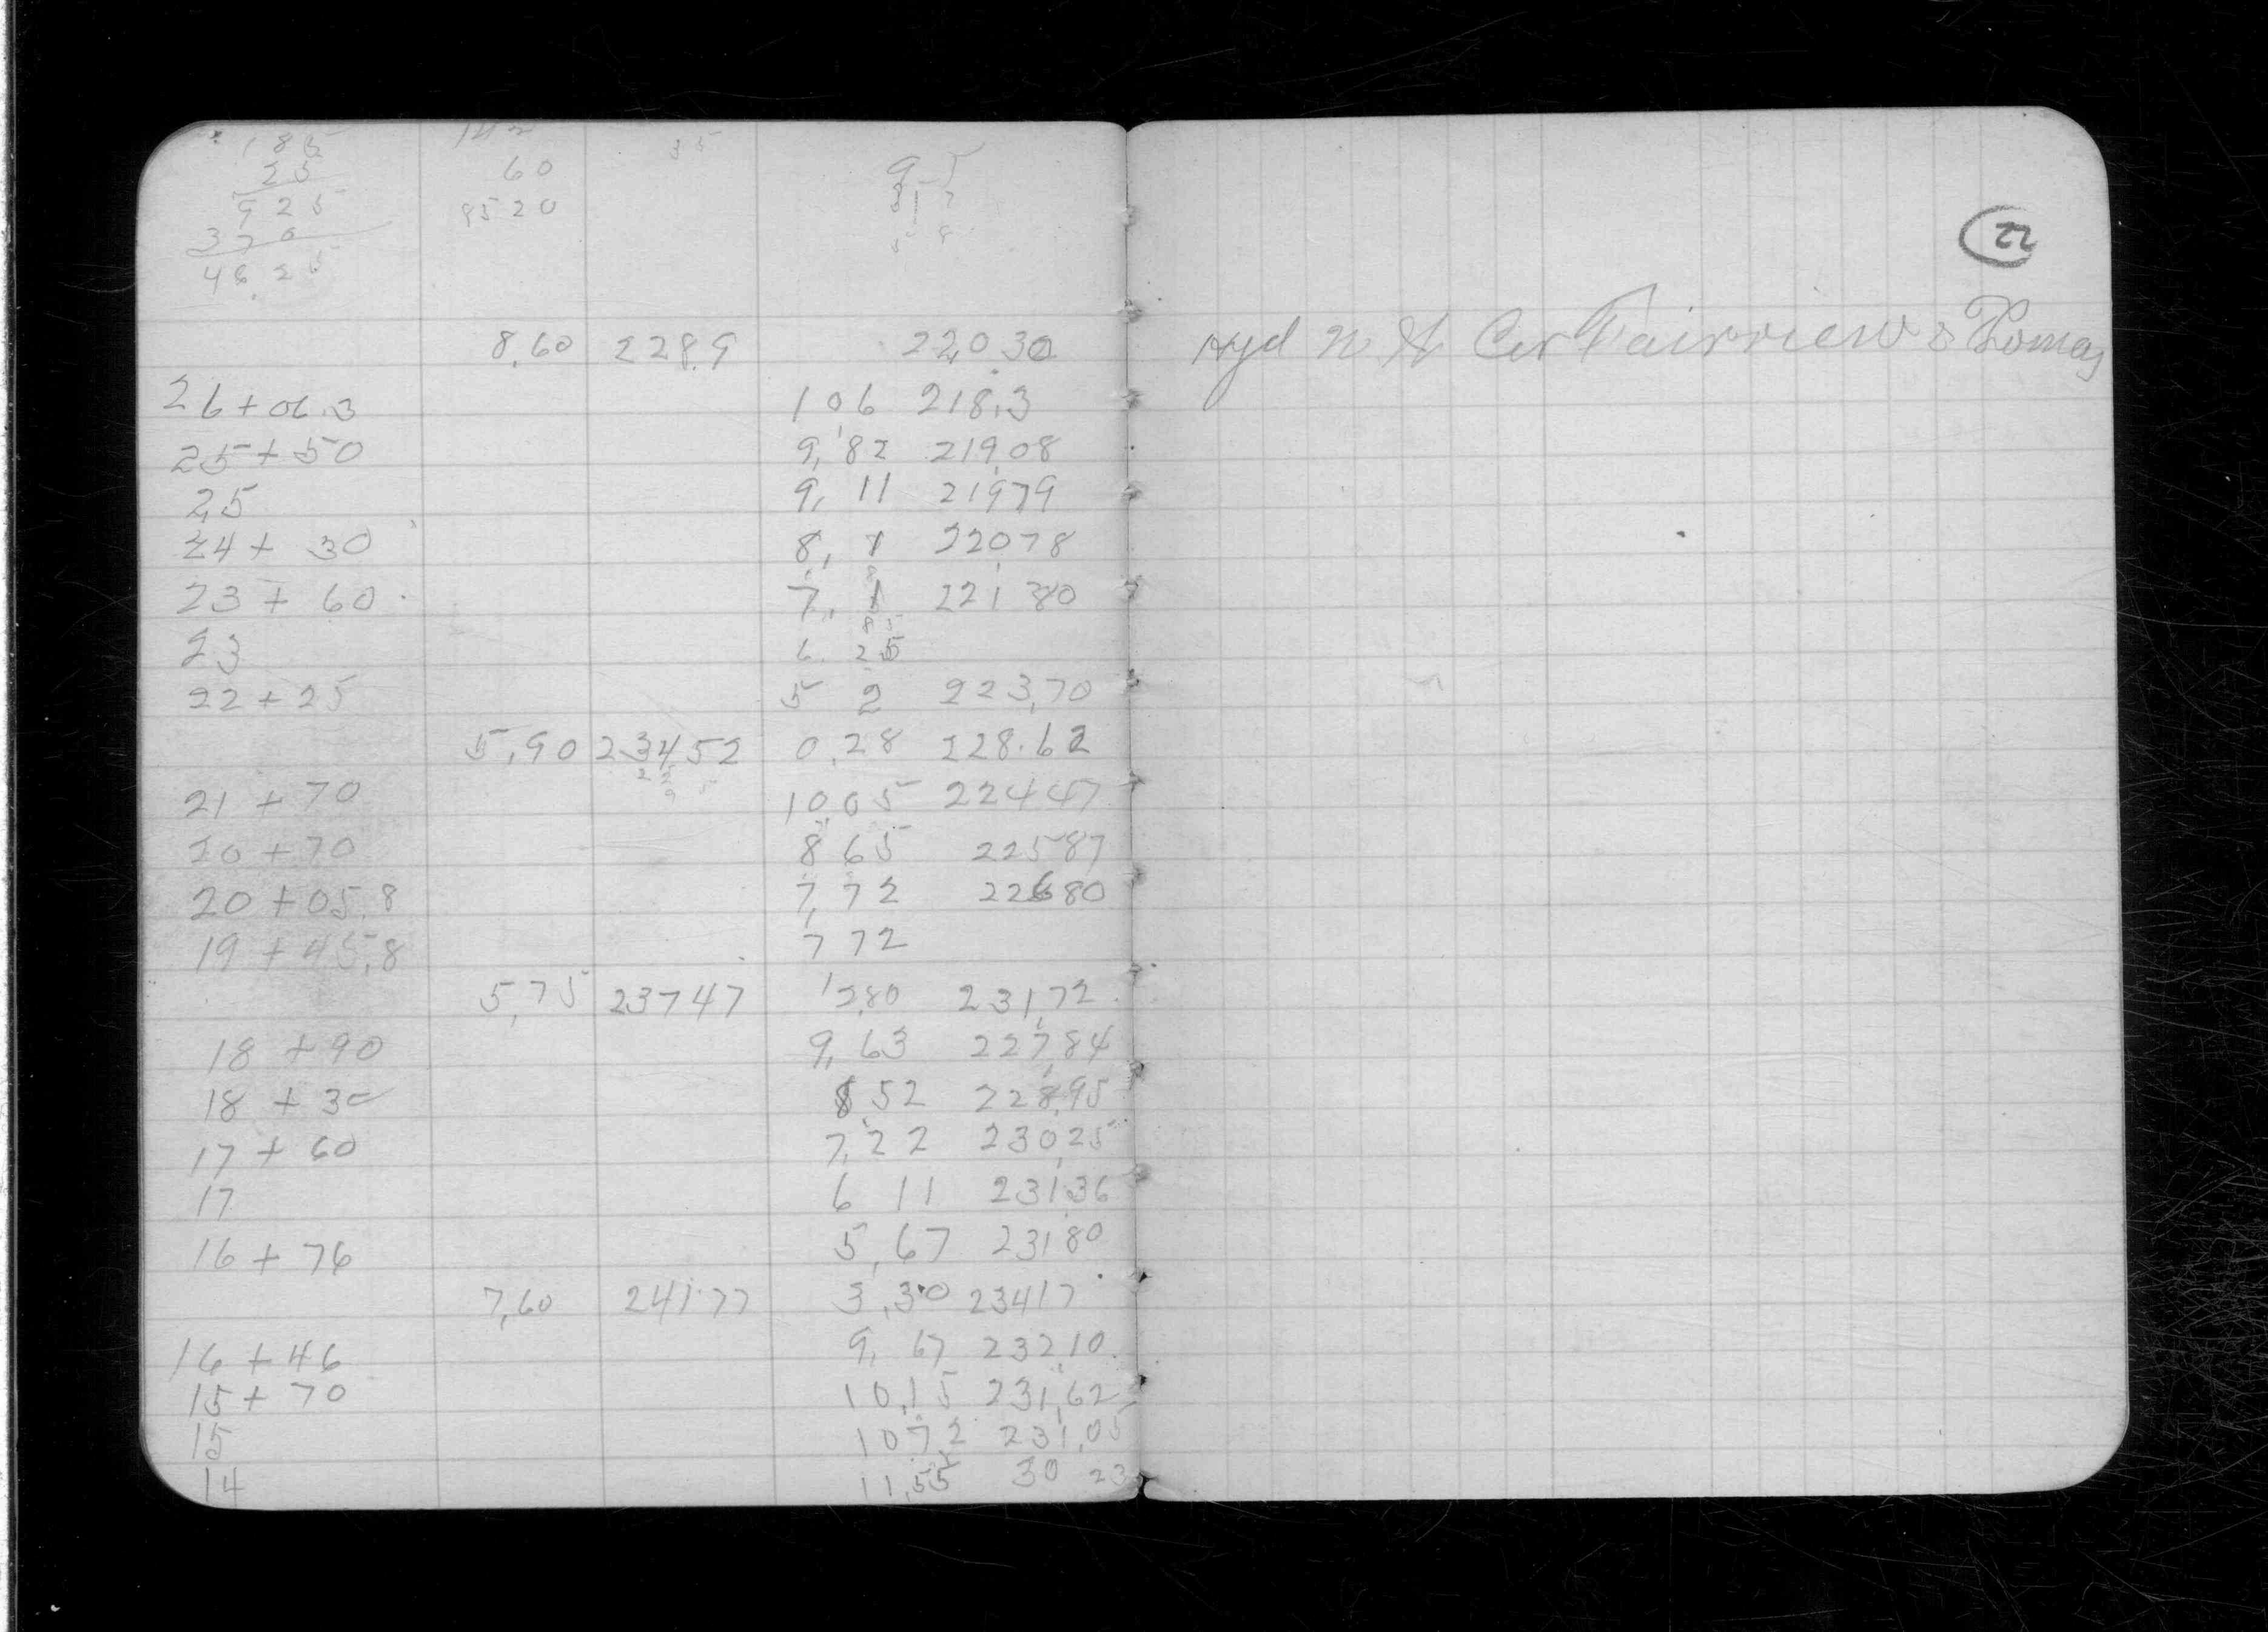 185
25
925
370
4625
142
60
8520
35
95
22
8,60 228.9 220.30
Hyd N W Cor Fairview & Thomas
26+06.3 106 218.3
25+50 9,82 219,08
25 9,11 21979
24+30 8,1 22078
23+60 7,1 221 80
8 5
23 6.25
22+25 5 2 223,70
5,90 234,52 0,28 228.62
21+70 10,05 22447
20+70 8 65 22587
20+05.8 7,72 22680
19+45,8 7 72
5,75 23747 280 231,72
18+90 9,63 227,84
18+30 8,52 228,95
17+60 7,22 230,25
17 6 11 231,36
16+76 5,67 23180
7,60 241.77 3,30 23417
16+46 9,67 232,10
15+70 10,15 231,62
15 1072 231,05
14 11,55 30 23